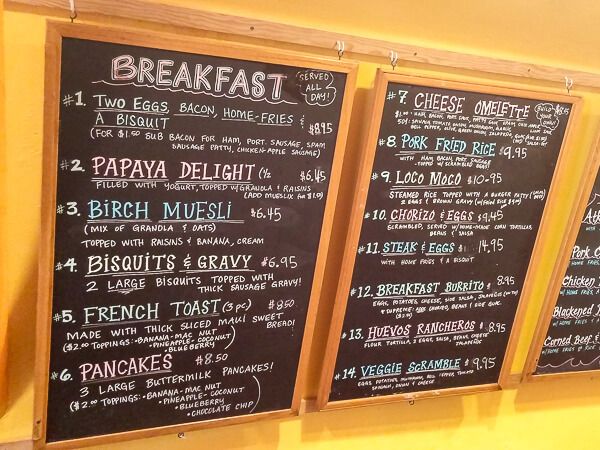 BREAKFAST
SERVED
ALL
DAY!
#1. TWO EGGS, BACON, HOME-FRIES &
A BISQUIT $8.95
(FOR $1.50 SUB BACON FOR HAM, PORT. SAUSAGE, SPAM
SAUSAGE PATTY, CHICKEN-APPLE SAUSAGE)
#2. PAPAYA DELIGHT (1/2 $6.45
FILLED WITH YOGURT, TOPPED W/GRANOLA & RAISINS
(ADD MUESLIX FOR
#3. BIRCH MUESLI $6.45
(MIX OF GRANOLA & OATS)
TOPPED WITH RAISINS & BANANA, CREAM
#4. BISQUITS & GRAVY $6.95
2 LARGE BISQUITS TOPPED WITH
THICK SAUSAGE GRAVY!
#5. FRENCH TOAST (3 PC) $9.50
MADE WITH THICK SLICED MAUI SWEET
BREAD!
($2.00 TOPPINGS: •BANANA-MAC NUT
•PINEAPPLE-COCONUT)
•BLUEBERRY
#6. PANCAKES $8.50
3 LARGE BUTTERMILK PANCAKES!
($2.00 TOPPINGS: •BANANA-MAC NUT
•PINEAPPLE-COCONUT
•BLUEBERRY
•CHOCOLATE CHIP)
#7. CHEESE OMELETTE
BUILD
YOUR
OWN!
#8. PORK FRIED RICE $9.95
WITH HAM, BACON, PORT. SAUSAGE
-TOPPED W/ SCRAMBLED EGGS!
#9. LOCO MOCO $10.95
STEAMED RICE TOPPED WITH A BURGER PATTY
2 EGGS & BROWN GRAVY
#10. CHORIZO & EGGS $9.45
SCRAMBLED, SERVED W/HOME-MADE CORN TORTILLAS,
BEANS & SALSA
#11. STEAK & EGGS 14.95
WITH HOME FRIES & A BISQUIT
#12. BREAKFAST BURRITO 8.95
EGGS, POTATOES, CHEESE, SIDE SALSA, JALAPEÑOS
#13. HUEVOS RANCHEROS $8.95
FLOUR TORTILLA, 2 EGGS, SALSA, BEANS, CHEESE
JALAPEÑOS
#14. VEGGIE SCRAMBLE $9.95
SPINACH, ONION & CHEESE
Pork
Chicken
Blackened
Corned Beef &